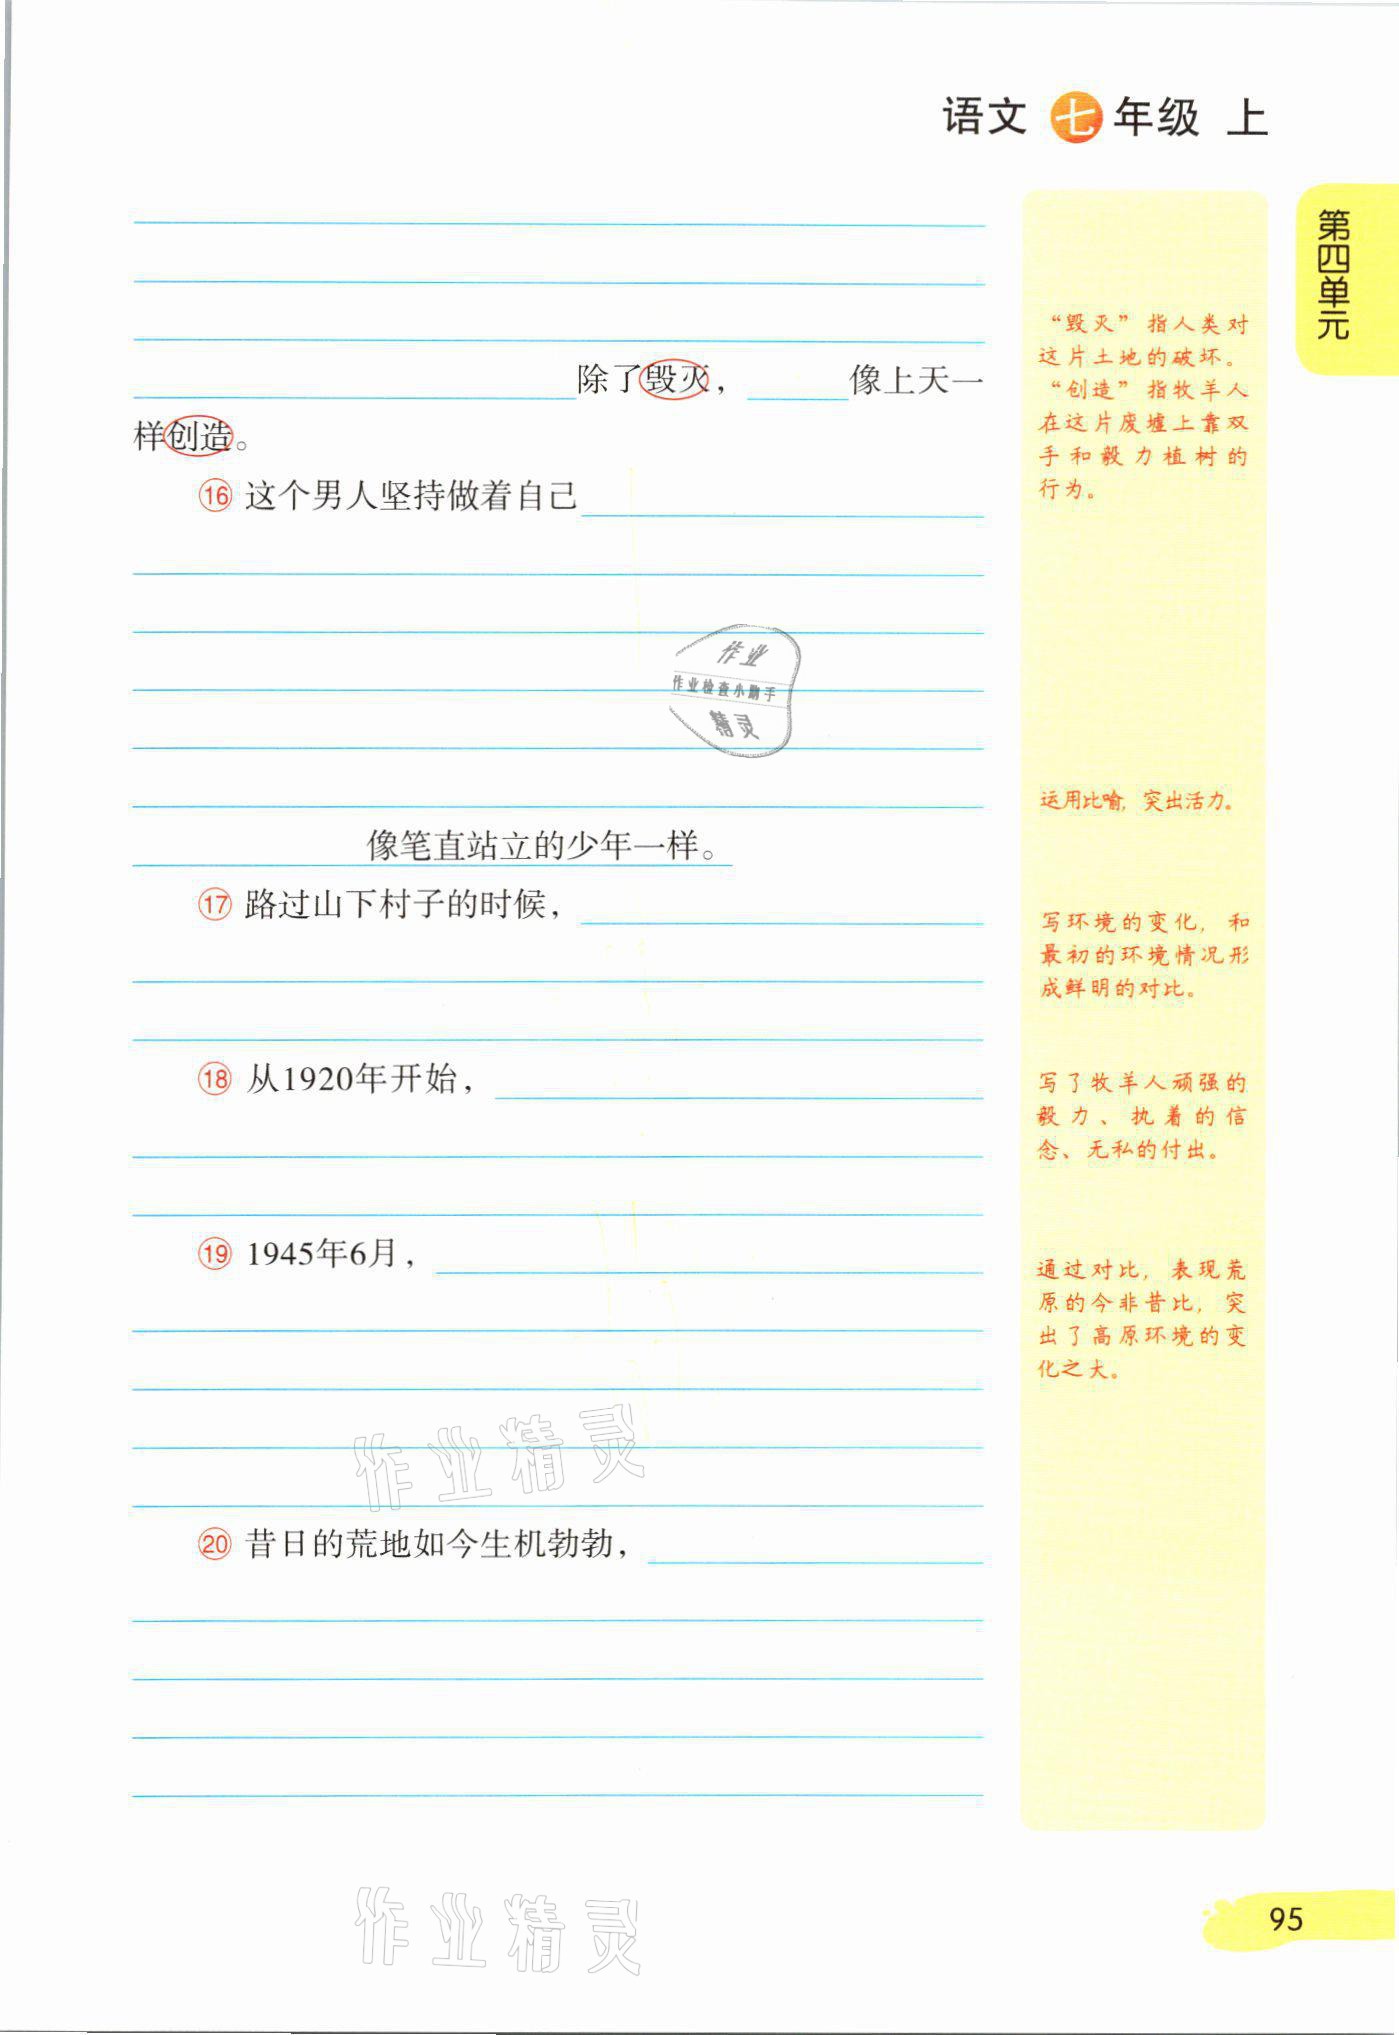 语文 七 年级 上
第四单元
除了毁灭，
像上天一
样创造。
“毁灭”指人类对
这片土地的破坏。
“创造”指牧羊人
在这片废墟上靠双
手和毅力植树的
行为。
⑯ 这个男人坚持做着自己
作业
作业检查小助手
精灵
像笔直站立的少年一样。
运用比喻，突出活力。
⑰ 路过山下村子的时候，
写环境的变化，和
最初的环境情况形
成鲜明的对比。
⑱ 从1920年开始，
写了牧羊人顽强的
毅力、执着的信
念、无私的付出。
⑲ 1945年6月，
通过对比，表现荒
原的今非昔比，突
出了高原环境的变
化之大。
作业精灵
⑳ 昔日的荒地如今生机勃勃，
作业精灵
95